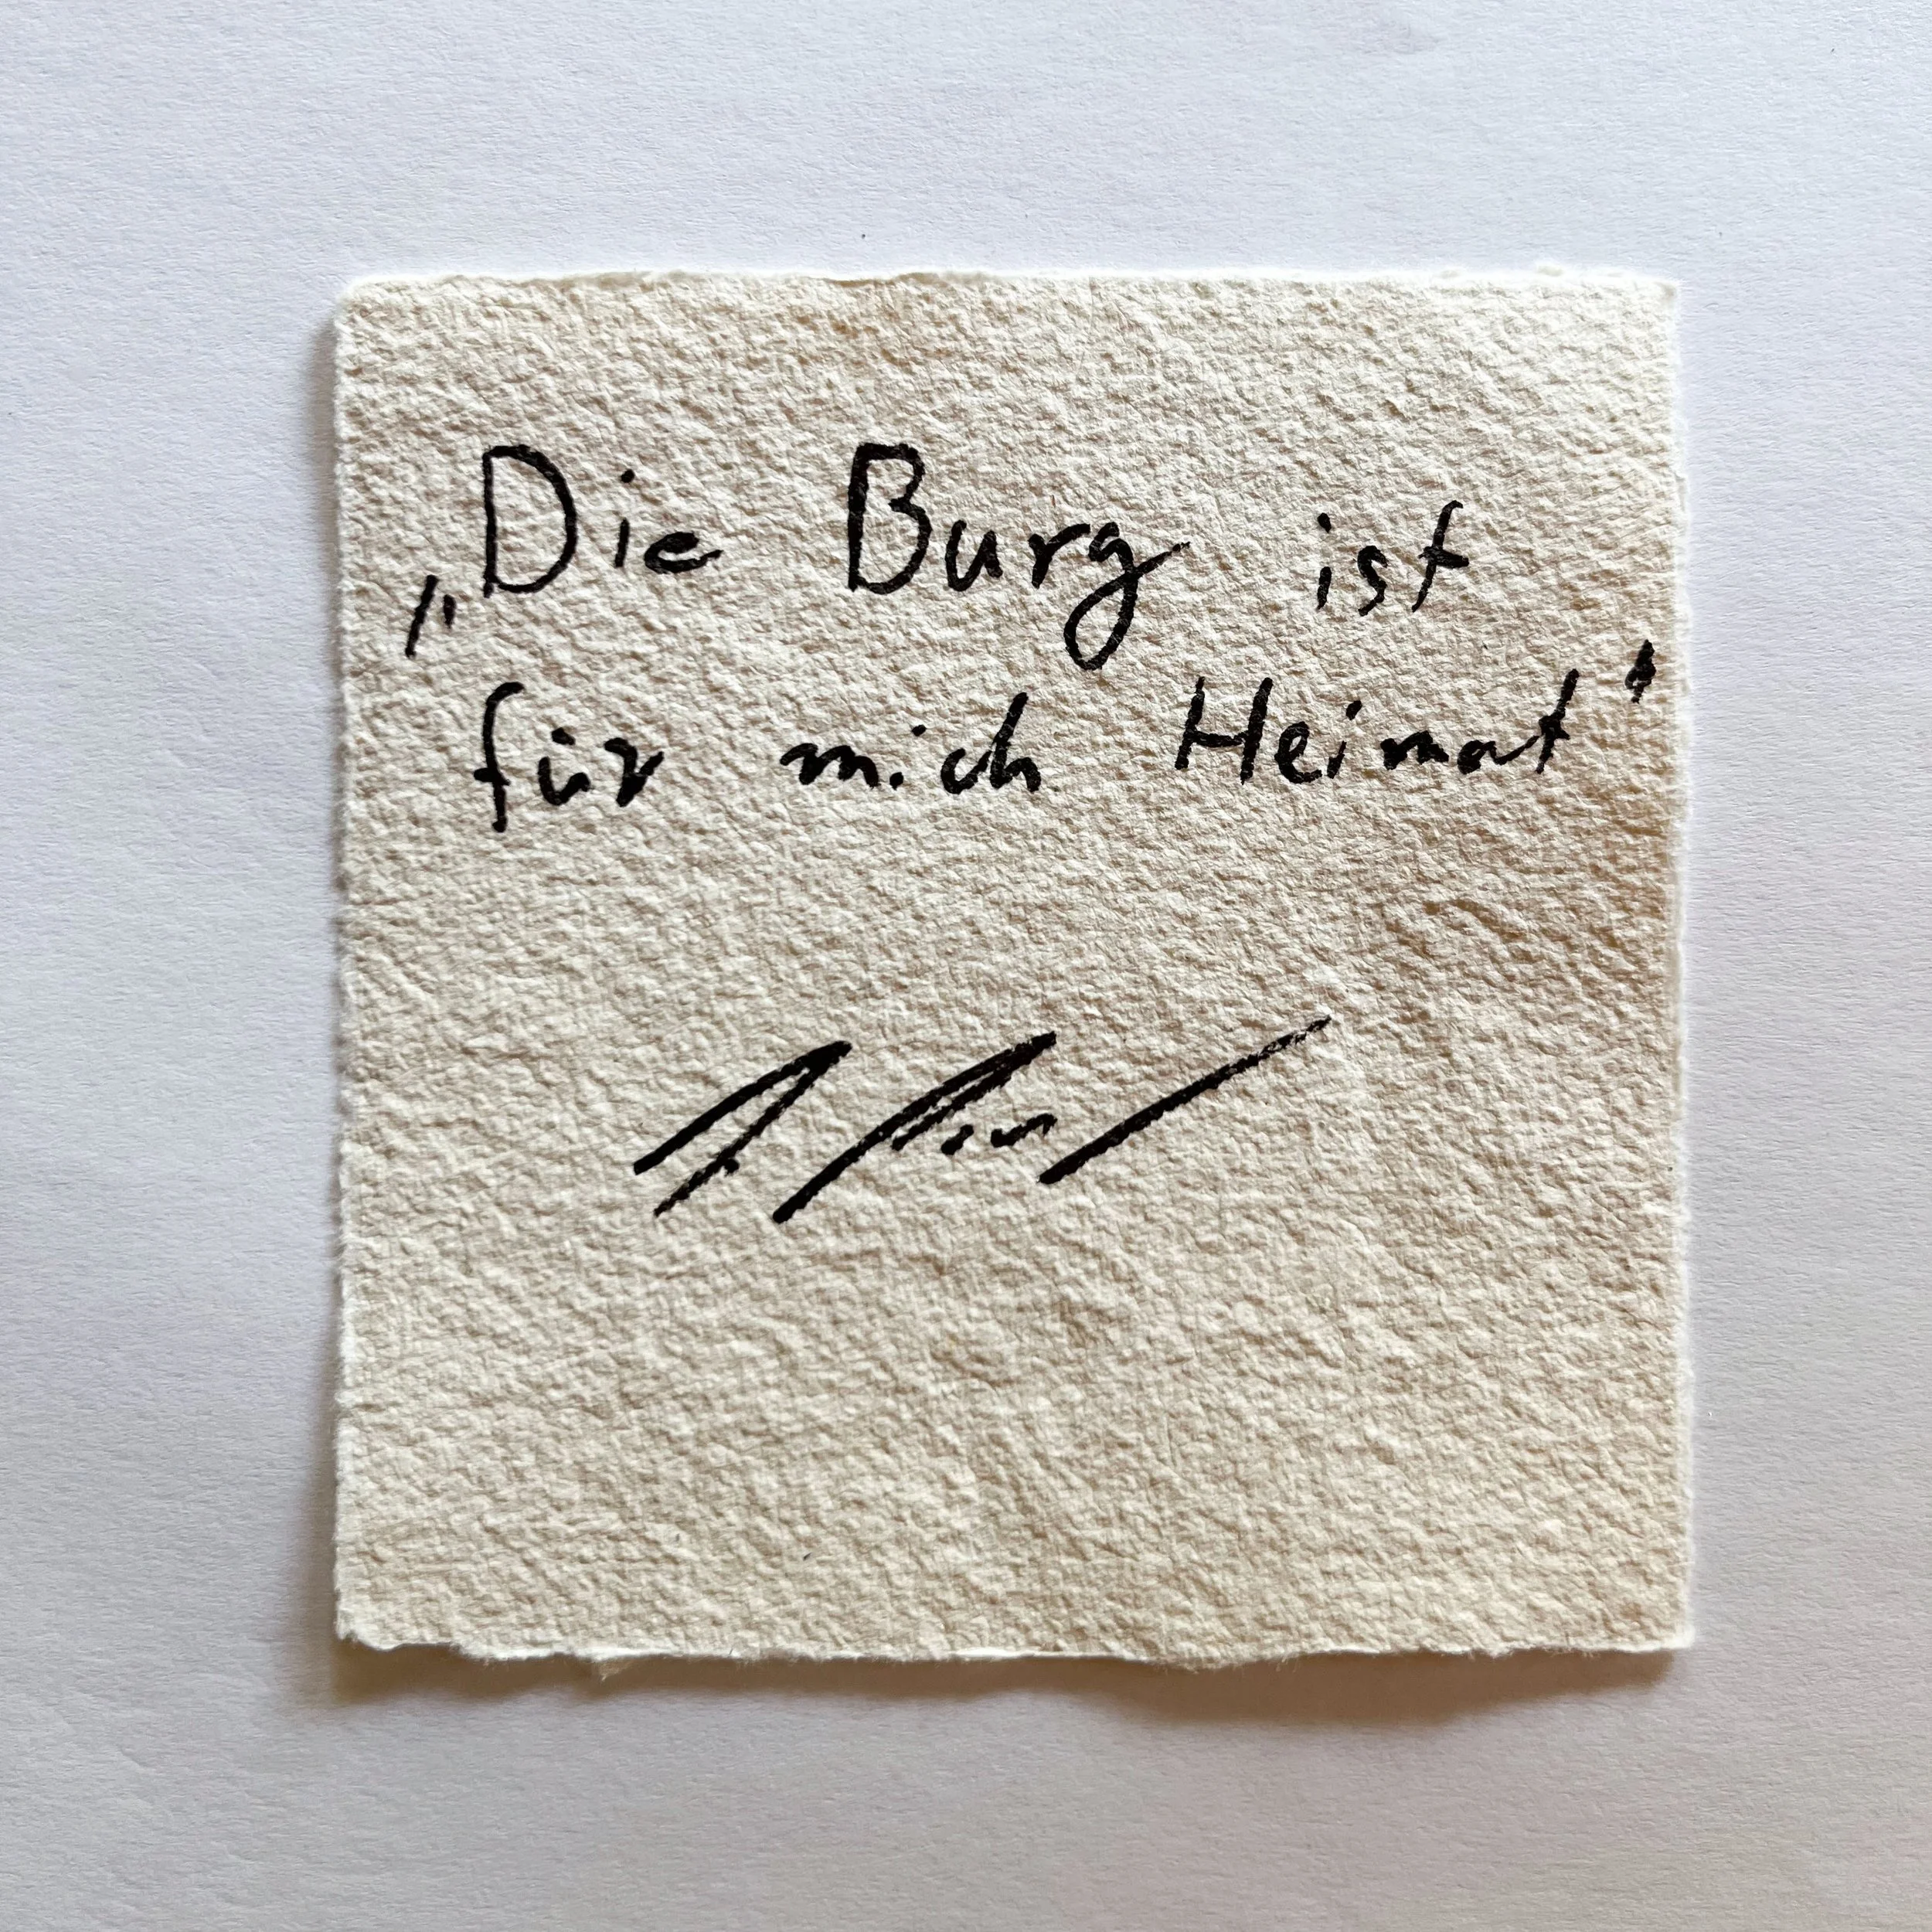 „Die Burg ist
für mich Heimat"